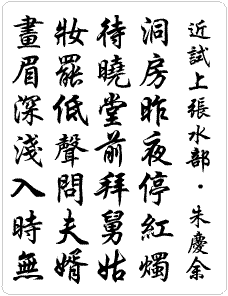 近試上張水部·朱慶余
洞房昨夜停紅燭
待曉堂前拜舅姑
妝罷低聲問夫婿
畫眉深淺入時無